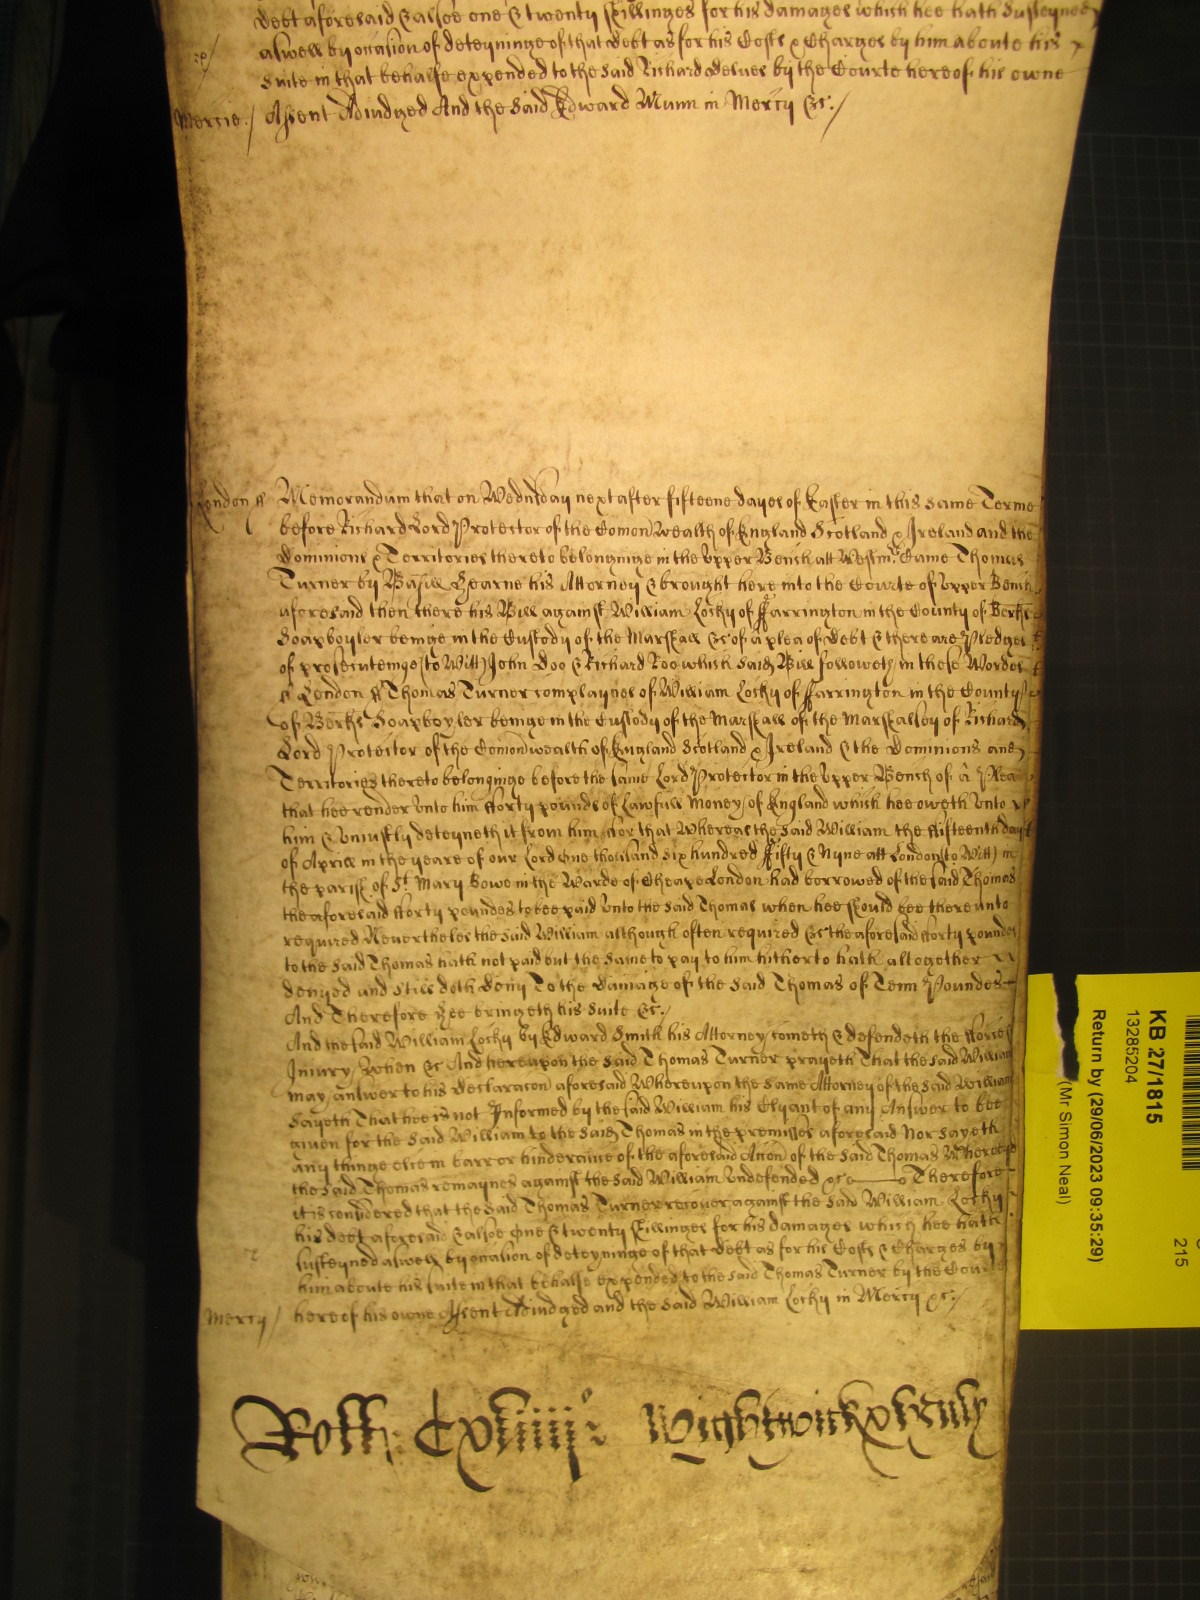 debt aforesaid & alsoe one & twenty shillinges for his damages which hee hath susteyned
aswell by occasion of deteyninge of that debt as for his Costs & Charges by him aboute his
suite in that behalfe expended to the said Richard Delves by the Courte hereof his owne
Mercie / Assent Adiudged And the said Edward Munn in Mercy &c /
London ss Memorandum that on Wednsday next after fifteene dayes of Easter in this same Terme
before Richard Lord Protector of the Comon Wealth of England Scotland & Ireland and the
Dominions & Territories thereto belonginge in the Upper Bench att Westmr Came Thomas
Turner by Basill Hearne his Attorney & brought here into the Courte of Upper Bench
aforesaid then there his Bill against William Locky of ffarrington in the County of Berks
Soapboyler beinge in the Custody of the Marshall &c of a plea of Debt & there are Pledges
of prosecuteinge (to Witt) John Doo & Richard Roo which said Bill followeth in these Wordes
ss London ss Thomas Turner complaynes of William Locky of ffarrington in the County
of Berks Soapboyler beinge in the Custody of the Marshall of the Marshalsey of Richard
Lord Protector of the Comon wealth of England Scotland & Ireland & the Dominions and
Territories thereto belonginge before the same Lord Protector in the Upper Bench of a Plea
that hee render unto him fforty pounds of Lawfull Money of England which hee oweth unto
him & uniustly deteyneth it from him for that Whereas the said William the ffifteenth day
of Aprill in the yeare of our Lord One thousand six hundred ffifty & Nyne att London (to Witt) in
the parish of St Mary Bowe in the Warde of Cheape London had borrowed of the said Thomas
the aforesaid fforty poundes to bee paid unto the said Thomas when hee should bee there unto
required Neverthelesse the said William although often required &c the aforesaid fforty poundes
to the said Thomas hath not paid but the same to pay to him hitherto hath altogether
denyed and still doth deny To the damage of the said Thomas of Tenn Poundes
And Therefore hee bringeth his Suite &c /
And the said William Locky by Edward Smith his Attorney cometh & defendeth the fforce
Iniury When &c And hereupon the said Thomas Turner prayeth That the said William
may answer to his Declaracon aforesaid Whereupon the same Attorney of the said William
Sayeth That hee is not Informed by the said William his Clyant of any Answer to bee
given for the said William to the said Thomas in the premisses aforesaid Nor sayeth
any thinge else in barr or hinderance of the aforesaid Accon of the said Thomas Whereby
the said Thomas remaynes against the said William Undefended &c Therefore
it is considered that the said Thomas Turner recover against the said William Locky
his debt aforesaid & alsoe One & twenty shillinges for his damages which hee hath
susteyned aswell by occasion of deteyninge of that debt as for his Costs & Charges by
him aboute his suite in that behalfe expended to the said Thomas Turner by the Courte
Mercy / hereof his owne Assent Adiudged and the said William Locky in Mercy &c /
Roll: Cxliiiio: Wightwick &
KB 27/1815
13285204
Return by (29/06/2023 09:35:29)
(Mr Simon Neal)
215